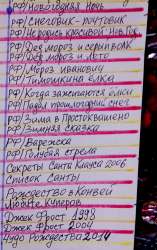 РФ/Новогодняя Ночь
РФ/Снеговик-почтовик
РФ/Не родись красивой Нов.Год
РФ/Дед мороз и серый волк
РФ/Дед мороз и лето
РФ/Мороз Иванович
РФ/Тимошкина ёлка
РФ/Когда зажигаются ёлки
РФ/Падал прошлогодний снег
РФ/Зима в Простоквашено
РФ/Зимняя сказка
РФ/Варежка
РФ/Голубая стрела
Секреты Санта Клауса 2006
Список Санты
Рождество в Конвей
Любите Куперов
Джек Фрост 1998
Джек Фрост 2004
Чудо Рождества 2014